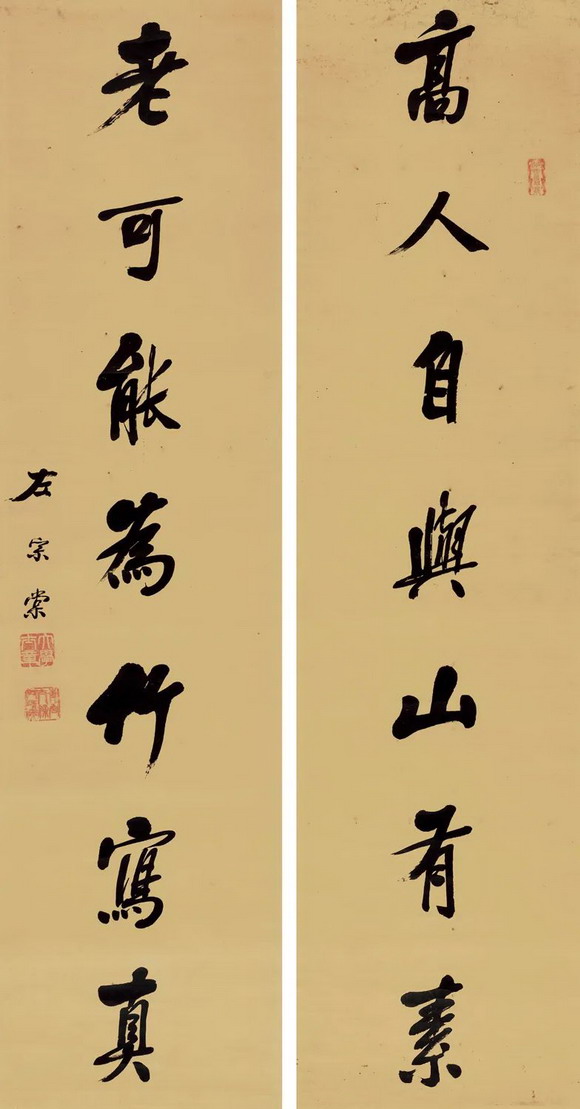 高人自與山有素
老可能為竹寫真
左宗棠